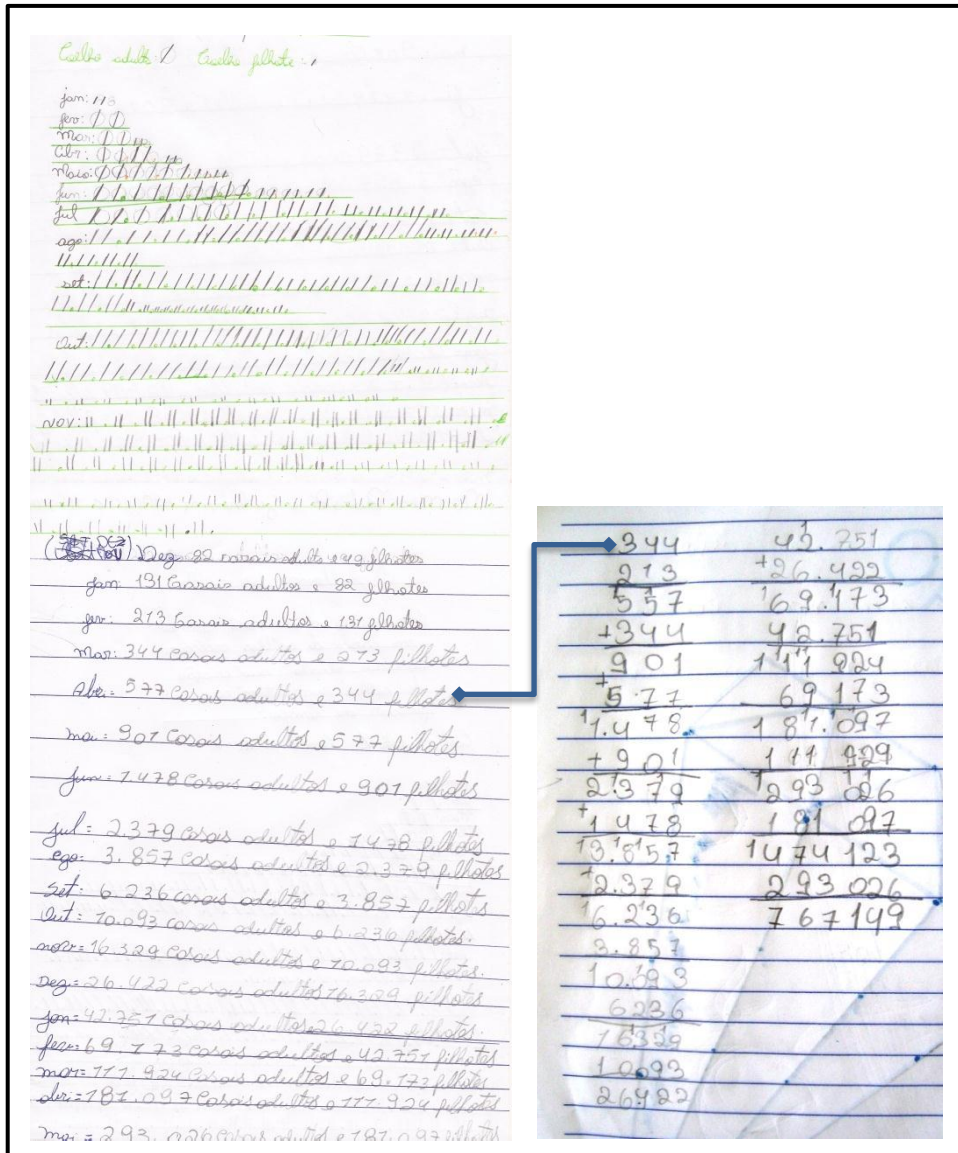 Coelho adulto: Coelho filhote:
jan:
fev:
Mar:
Abr:
Maio:
Jun:
Jul
ago:
set:
Out:
NOV:
Dez 82 casais adulto e 49 filhotes
jan 131 Casais adultos e 82 filhotes
fev: 213 Casais adultos e 131 filhotes
Mar: 344 casais adultos e 213 filhotes
Abr: 577 casais adultos e 344 filhotes
mai = 901 Casais adultos e 577 filhotes
jun = 1.478 casais adultos e 901 filhotes
jul = 2.379 casais adultos e 1478 filhotes
ago: 3.857 casais adultos e 2.379 filhotes
Set: 6.236 casais adultos e 3.857 filhotes
Out: 10.093 casais adultos e 6.236 filhotes.
nov = 16.329 casais adultos e 10.093 filhotes.
Dez = 26.422 casais adultos 16.329 filhotes
jan = 42.751 casais adultos 26.422 filhotes.
fev = 69.173 casais adultos e 42.751 filhotes
mar = 111.924 casais adultos e 69.173 filhotes
abri = 181.097 casais adultos e 111.924 filhotes
mai = 293.026 casais adultos e 181.097 filhotes
344
213
557
+344
901
+577
1.478
+901
2.379
+1478
3.857
2.379
6.236
3.857
10.093
6236
16329
10093
26422
42.751
+26.422
69.173
42.751
111 924
69 173
181.097
111 929
293 026
181 097
474 123
293 026
767149